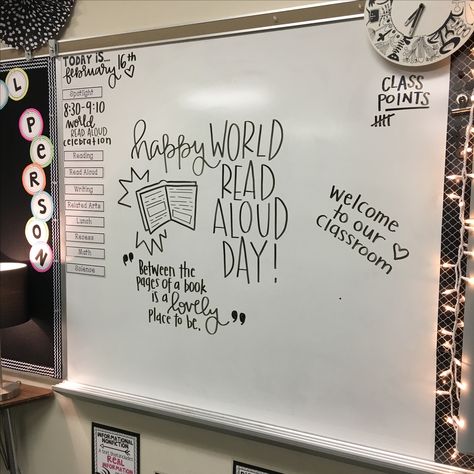 L PERSON
TODAY IS...
february 16th
Spotlight
8:30-9:10
world
READ ALOUD
celebration
Reading
Read Aloud
Writing
Related Arts
Lunch
Recess
Math
Science
happy WORLD
READ
ALOUD
DAY!
"Between the
pages of a book
is a lovely
place to be."
CLASS
POINTS
welcome
to our
classroom
INFORMATIONAL
NONFICTION
A text that includes
REAL
INFORMATION